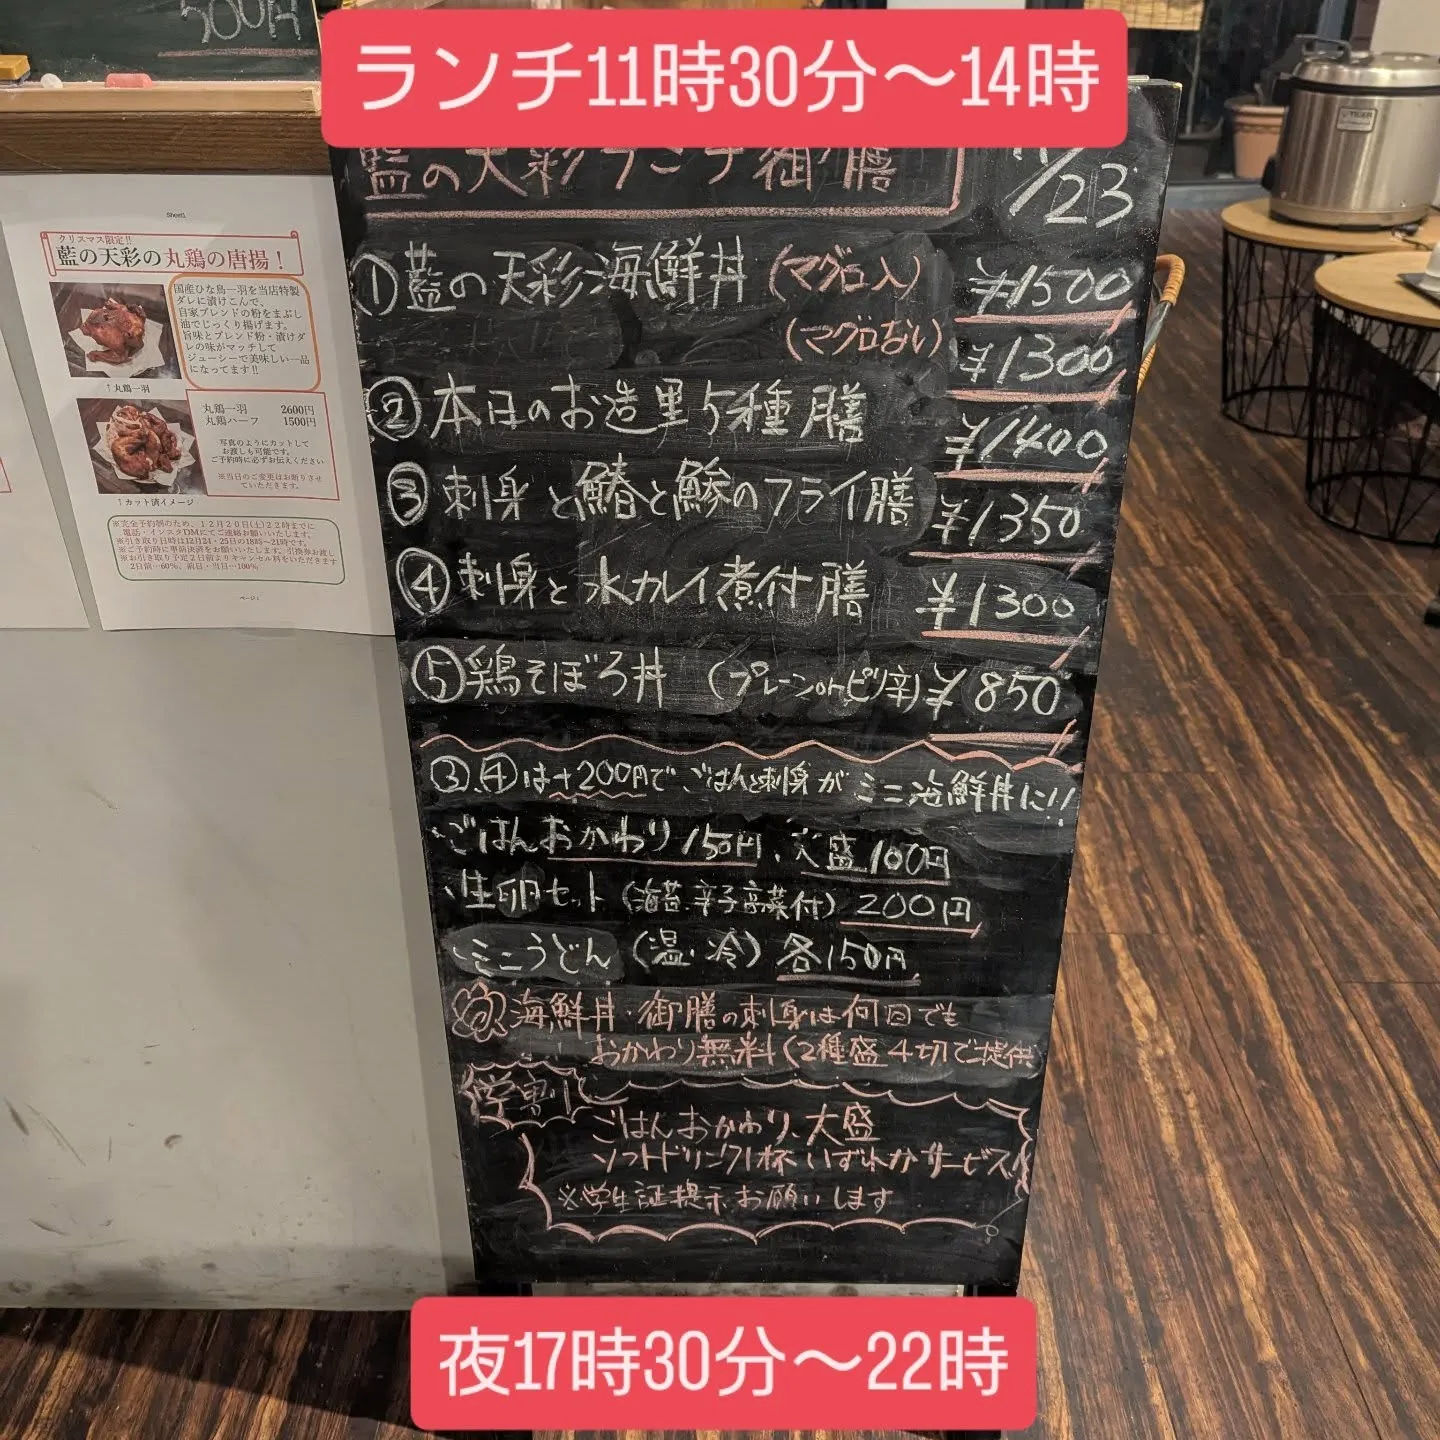 500円
ランチ11時30分〜14時
藍の天彩ランチ御膳
/23
①藍の天彩海鮮丼(マグロ入) ¥1500
(マグロない) ¥1300
②本日のお造里5種膳 ¥1400
③刺身と鰆と鯵のフライ膳 ¥1350
④刺身と水カレイ煮付膳 ¥1300
⑤鶏そぼろ丼 (プレーンorピリ辛) ¥850
③④は+200円でごはんと刺身がミニ海鮮丼に!!
・ごはんおかわり150円、大盛100円
・生卵セット(海苔・辛子高菜付)200円
・ミニうどん(温・冷)各150円
海鮮丼・御膳の刺身は何回でも
おかわり無料(2種盛4切で提供
学割
ごはんおかわり、大盛
ソフトドリンク1杯いずれかサービス
※学生証提示お願いします
夜17時30分〜22時
Sheet1
クリスマス限定!!
藍の天彩の丸鶏の唐揚！
国産ひな鳥一羽を当店特製
ダレに漬けこんで、
自家ブレンドの粉をまぶし
油でじっくり揚げます。
旨味とブレンド粉・漬けダ
レの味がマッチして
ジューシーで美味しい一品
になってます!!
↑丸鶏一羽
丸鶏一羽 2600円
丸鶏ハーフ 1500円
写真のようにカットして
お渡しも可能です。
ご予約時に必ずお伝えください
※当日のご変更はお断りさせ
ていただきます。
↑カット済イメージ
※完全予約制のため、12月20日(土)22時までに
電話・インスタDMにてご連絡お願いいたします。
※引き取り日時は12月24・25日の18時〜21時です。
※ご予約時に事前決済をお願いいたします。引換券お渡し
※お引き取り予定2日前よりキャンセル料をいただきます
2日前…60%、前日・当日…100%
ページ1
TIGER